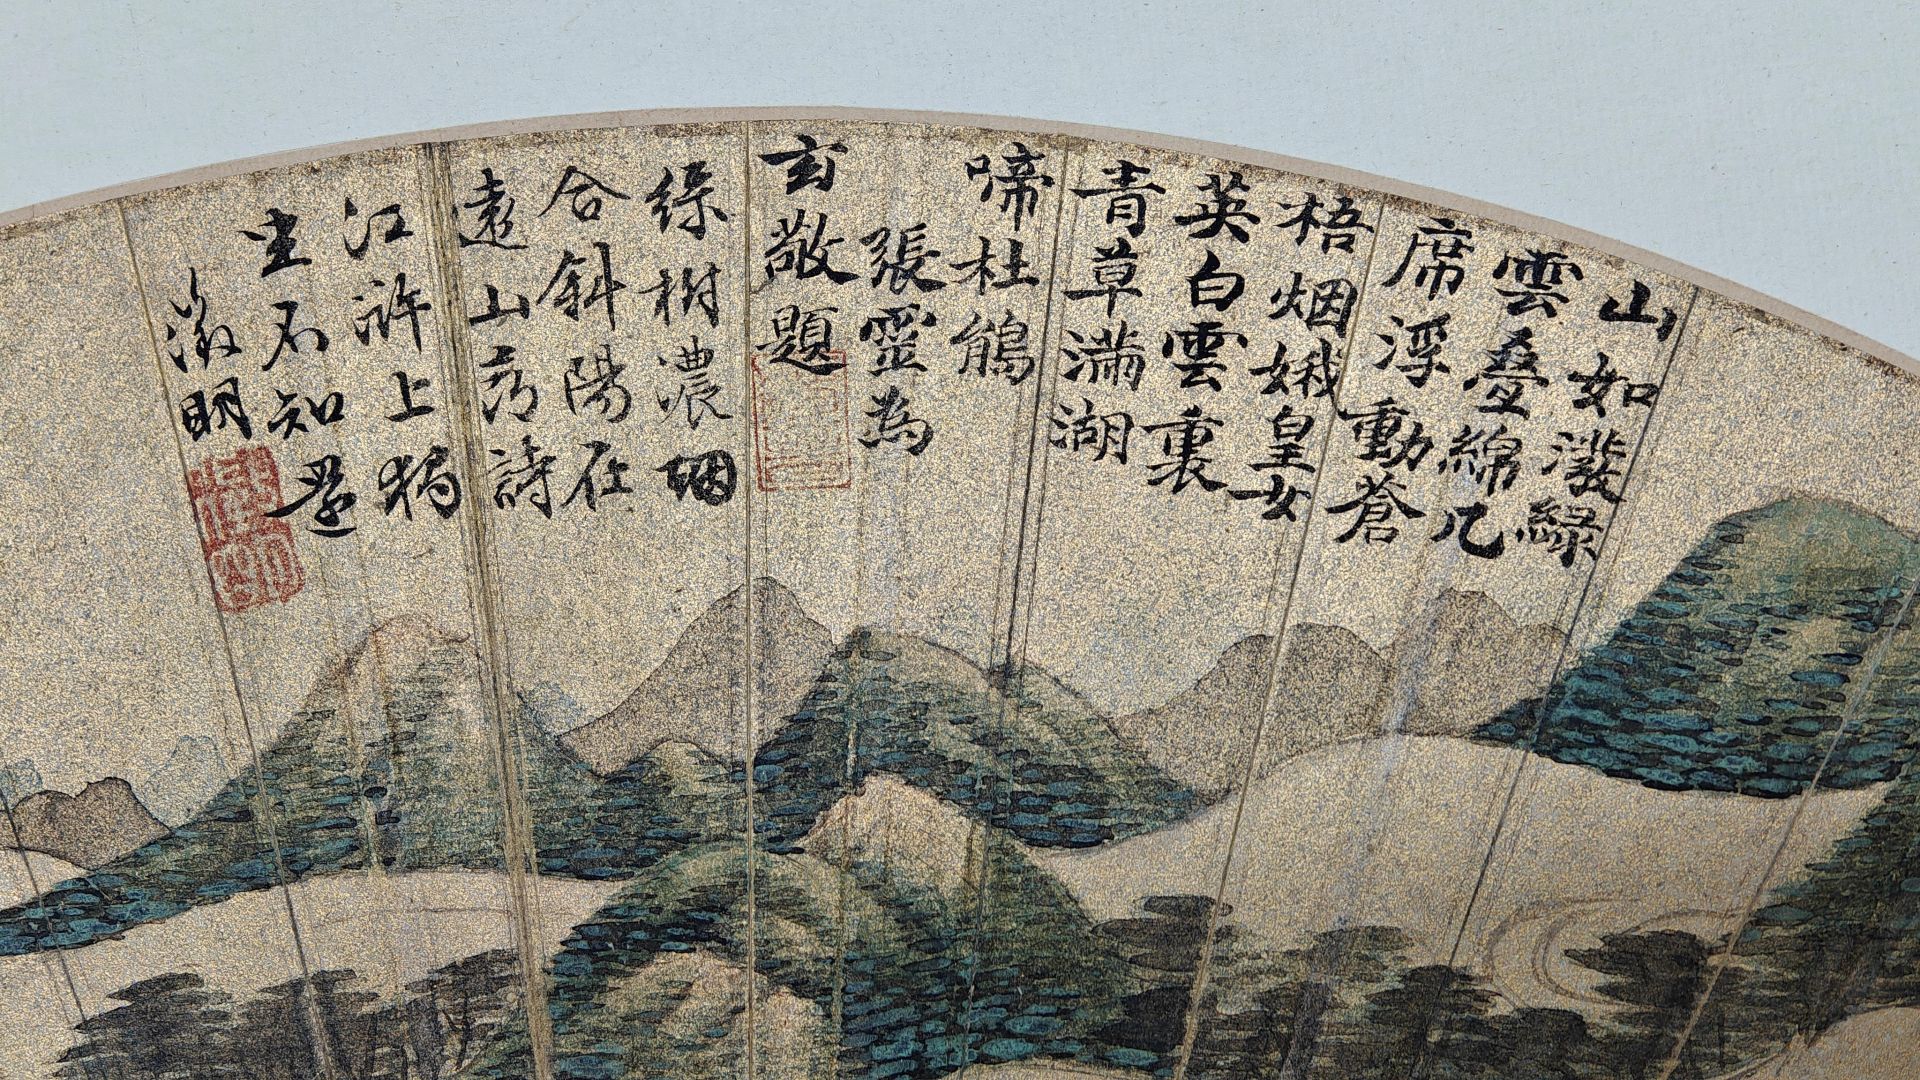 山如潑綠
雲疊綿几
席浮動蒼
梧烟娥皇女
英白雲裏
青草滿湖
啼杜鵑
張靈為
玄敬題
綠樹濃烟
合斜陽在
遠山尋詩
江滸上獨
坐不知還
徵明